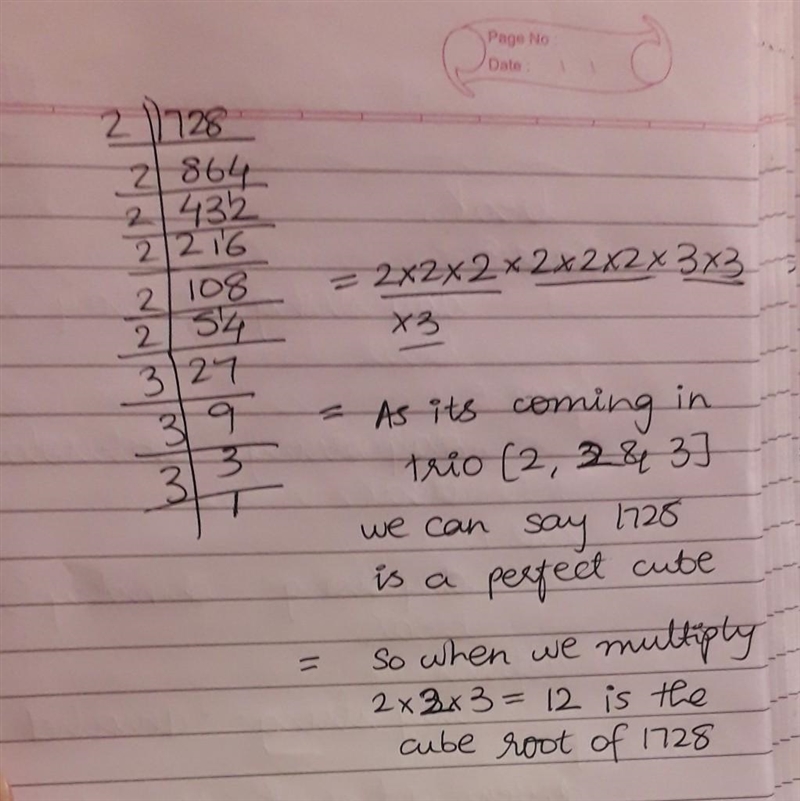 Page No :
Date : \ \
2 | 1728
2 | 864
2 | 432
2 | 216
2 | 108
2 | 54
3 | 27
3 | 9
3 | 3
1
= 2×2×2 × 2×2×2 × 3×3
×3
= As its coming in
trio [2, 2 & 3]
we can say 1728
is a perfect cube
= So when we multiply
2×2×3 = 12 is the
cube root of 1728